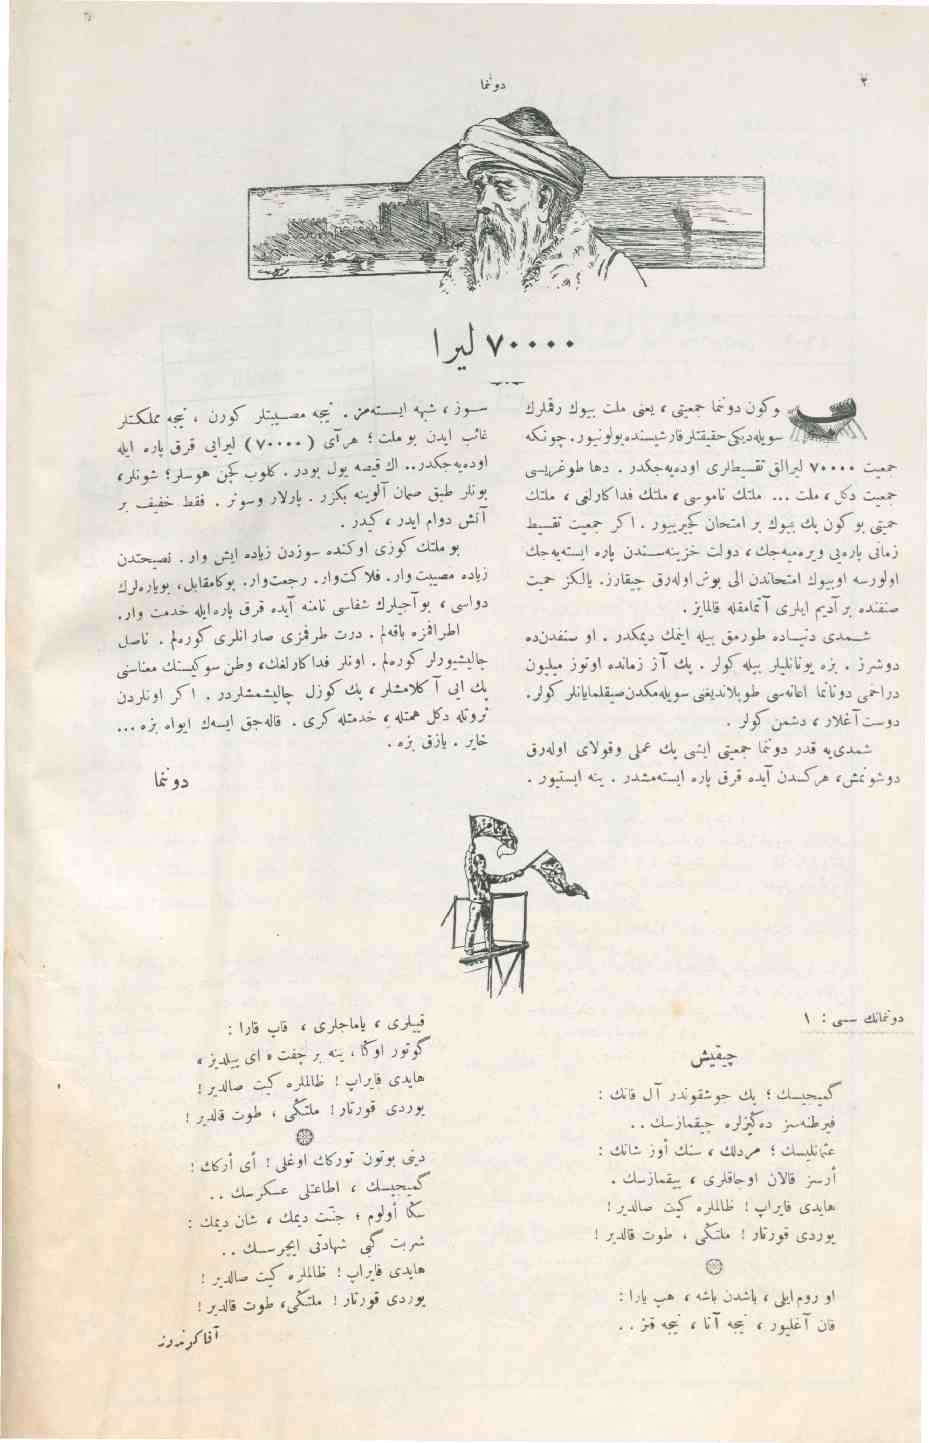 دوننما
٢
٧٠٠٠٠ ليرا
وكون دوننما جمعيتى ، يعنى ملت بيوك رقملرك
سويله‌ديكى حقيقتلر قارشيسنده بولونيور. چونكه
جمعيت ٧٠٠٠٠ ليرالق تقسيطلرى اوده‌يه‌جكدر . دها طوغريسى
جمعيت دكل ، ملت ... ملتك ناموسى ، ملتك فداكارلغى ، ملتك
حميتى بو كون پك بيوك بر امتحان كچيرييور. اكر جمعيت تقسيط
زمانى پاره‌يى ويره‌ميه‌جك ، دولت خزينه‌سندن پاره ايسته‌يه‌جك
اولورسه او بيوك امتحاندن الى بوش اوله‌رق چيقارز. يالكز حميت
صنفنده بر آديم ايلرى آتمامقله قالمايز.
شمدى دنياده طورمق بيله اينمك ديمكدر . او صنفدن ده
دوشرز . بزه يونانليلر بيله كولر . پك آز زمانده اوتوز ميليون
دراحمى دونانما اعانه‌سى طوپلانديغنى سويله‌مكدن صيقلمايانلر كولر.
دوست آغلار ، دشمن كولر .
شمدى‌يه قدر دوننما جمعيتى ايشى پك عملى وقولاى اوله‌رق
دوشونمش، هركسدن آيده قرق پاره ايسته‌مشدر . ينه ايستيور .
سوز ، شبهه ايسته‌مز . نيجه مصيبتلر كورن ، نيجه مملكتلر
غائب ايدن بو ملت ؛ هر آى ( ٧٠٠٠٠ ) ليرايى قرق پاره ايله
اوده‌يه‌جكدر.. اك قيصه يول بودر . كلوب كچن هوسلر؟ شونلر،
بونلر طبق صمان آلوينه بكزر . پارلار وسونر . فقط خفيف بر
آتش دوام ايدر ، كيدر .
بو ملتك كوزى اوكنده سوزدن زياده ايش وار . نصيحتدن
زياده مصيبت وار. فلاكت وار. رجعت وار. بوكا مقابل، بو ياره‌لرك
دواسى ، بو آجيلرك شفاسى نامنه آيده قرق پاره ايله خدمت وار.
اطرافمزه باقه‌لم . درت طرفمزى صارانلرى كوره‌لم . ناصل
چاليشيورلر كوره‌لم . اونلر فداكارلغك، وطن سوكيسنك معناسنى
پك ايى آكلامشلر ، پك كوزل چاليشمشلردر . اكر اونلردن
ثروتله دكل همتله ، خدمتله كرى . قاله‌جق ايسه‌ك ايواه بزه ...
خاير . يازق بزه .
دوننما
دوننمانك سسى : ١
چيقيش
گميجيسك ؛ پك جوشقوندر آل قانك :
فيرطنه‌سز ده‌ڭيزلره چيقمازسك ..
عثمانليسك ؛ مردلك ، سنك أوز شانك :
أرسز قالان اوجاقلرى ، ييقمازسك .
هايدى قايراپ ! ظالملره كيت صالدير !
يوردى قورتار ! ملتڭى ، طوت قالدير !
او روم ايلى ، باشدن باشه ، هپ يارا :
قان آغليور ، نيجه آنا ، نيجه قيز ..
قبيلرى ، ياماجلرى ، قاپ قارا :
گوتور اوڭا ، ينه بر چفت ه اى ييلديز ،
هايدى قايراپ ! ظالملره كيت صالدير !
يوردى قورتار ! ملتڭى ، طوت قالدير !
دينى بوتون توركك اوغلى ! أى أركك :
گميجيسك ، اطاعتلى عسكرسك ..
سڭا أولوم ؛ جنت ديمك ، شان ديمك :
شربت گبى شهادتى ايچرسك ..
هايدى قايراپ ! ظالملره كيت صالدير !
يوردى قورتار ! ملتڭى ، طوت قالدير !
آقا كوندوز